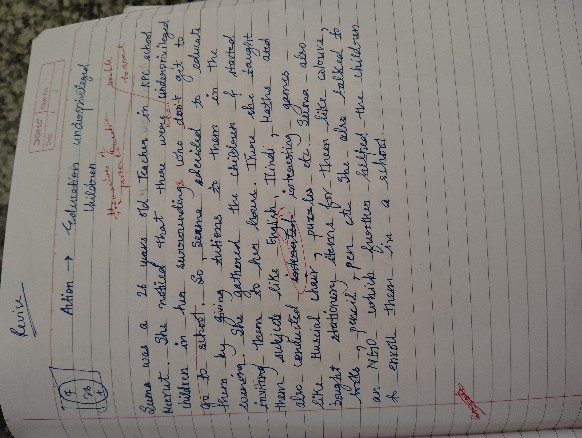 Revise
Action → Education underprivileged
children
7
Seema was a 26 years old Teacher in KPC school
Meerut. She noticed that there were underprivileged
children in her surroundings who don't get to
go to school. So, Seema educated to educate
them by giving tutions to them in the
evening. She gathered the children & started
inviting them to her house. There she taught
them subjects like English, Hindi, Maths and
also conducted interesting games
like Musical chair, puzzles etc. Seema also
bought stationery items for them like colours,
books, pencil, pen etc. She also talked to
an NGO which further helped the children
to enroll them in a school.